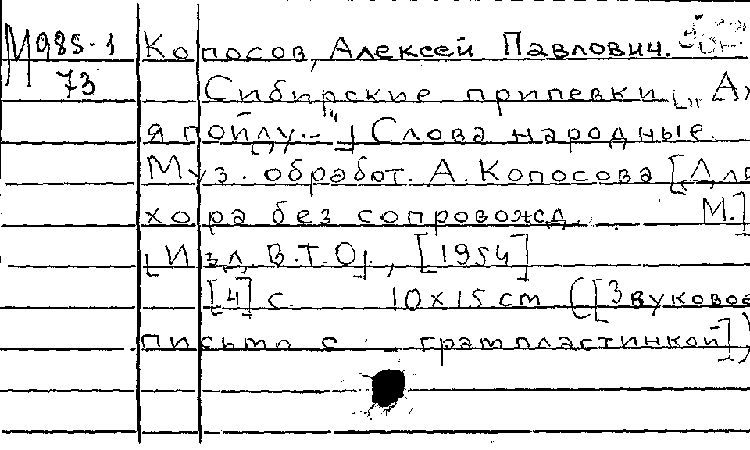 М985-1
73
Копосов, Алексей Павлович.
Сибирские припевки [„Ах
я пойду-"] Слова народные.
Муз. обработ. А. Копосова [Для
хора без сопровожд. М.]
[Изд. В.Т.О], [1954]
[4] с 10x15 cm ([Звуковое
письмо с грампластинкой])